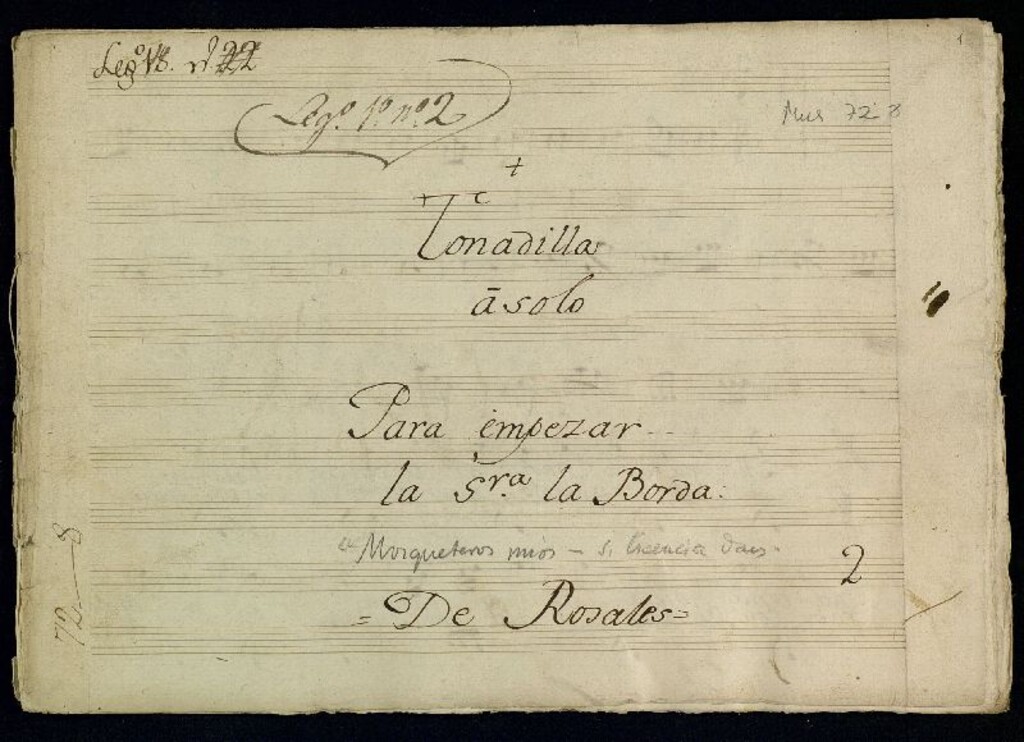 Leg.º 18. nº 22
Leg.º 1º nº 2
Mus 72-8
Tonadilla
ā solo
Para empezar
la Sra. la Borda.
"Mosqueteros mios - si licencia dais"
2
= De Rosales =
72-8